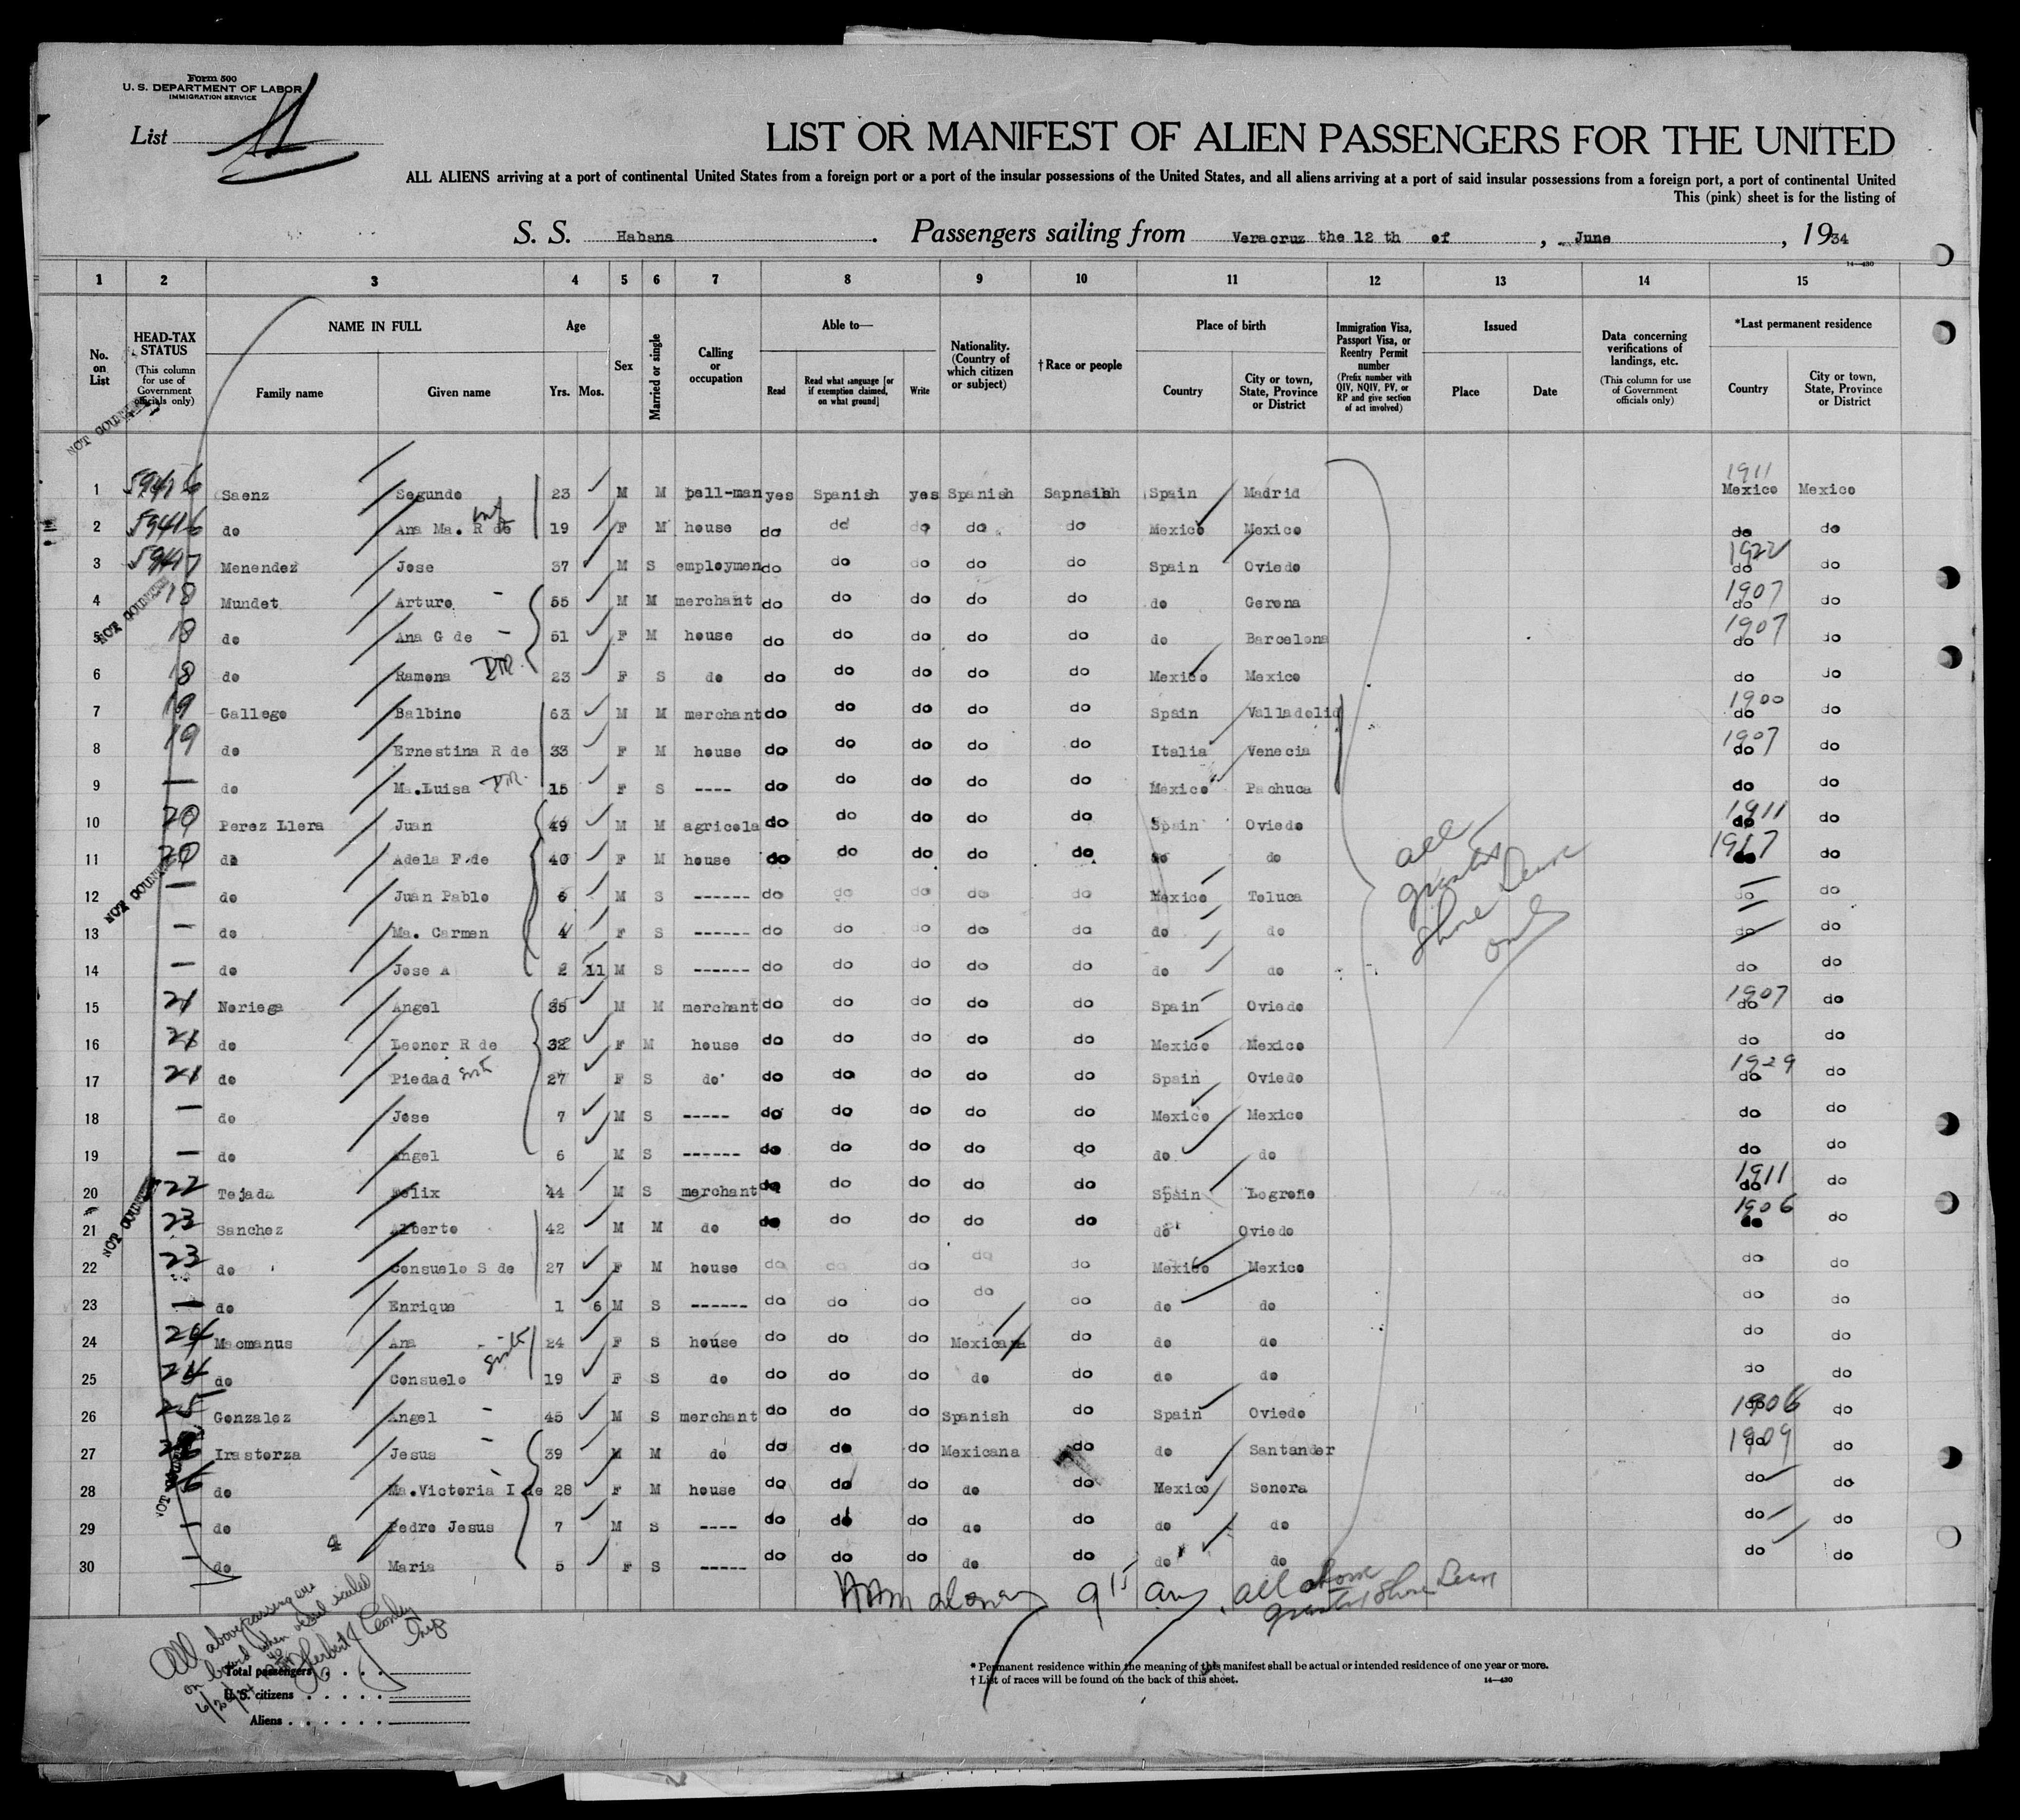 Form 500
U. S. DEPARTMENT OF LABOR
IMMIGRATION SERVICE
List
LIST OR MANIFEST OF ALIEN PASSENGERS FOR THE UNITED
ALL ALIENS arriving at a port of continental United States from a foreign port or a port of the insular possessions of the United States, and all aliens arriving at a port of said insular possessions from a foreign port, a port of continental United
This (pink) sheet is for the listing of
S. S. Habana . Passengers sailing from Veracruz the 12 th of , June , 1934
14—430
1 2 3 4 5 6 7 8 9 10 11 12 13 14 15
No. on List
HEAD-TAX STATUS (This column for use of Government officials only)
NAME IN FULL Family name Given name
Age Yrs. Mos.
Sex
Married or single
Calling or occupation
Able to— Read Read what language [or if exemption claimed, on what ground] Write
Nationality. (Country of which citizen or subject)
† Race or people
Place of birth Country City or town, State, Province or District
Immigration Visa, Passport Visa, or Reentry Permit number (Prefix number with QIV, NQIV, PV, or RP and give section of act involved)
Issued Place Date
Data concerning verifications of landings, etc. (This column for use of Government officials only)
*Last permanent residence Country City or town, State, Province or District
NOT COUNTED
1911
1 59416 Saenz Segundo 23 M M bell-man yes Spanish yes Spanish Sapnaish Spain Madrid Mexico Mexico
2 59416 do Ana Ma. R de 19 F M house do do do do do Mexico Mexico do do
3 59417 Menendez Jose 37 M S employmen do do do do do Spain Oviedo 1922 do do
4 18 Mundet Arturo 55 M M merchant do do do do do do Gerona 1907 do do
NOT COUNTED
5 18 do Ana G de 51 F M house do do do do do do Barcelona 1907 do do
6 18 do Ramona 23 F S do do do do do do Mexico Mexico do do
7 19 Gallego Balbino 63 M M merchant do do do do do Spain Valladolid 1900 do do
8 19 do Ernestina R de 33 F M house do do do do do Italia Venecia 1907 do do
9 — do Ma.Luisa 15 F S ---- do do do do do Mexico Pachuca do do
10 20 Perez Llera Juan 49 M M agricola do do do do do Spain Oviedo 1911 do do
11 20 do Adela F.de 40 F M house do do do do do do do 1917 do do
NOT COUNTED
12 — do Juan Pablo 6 M S ------ do do do do do Mexico Toluca do do
13 — do Ma. Carmen 4 F S ------ do do do do do do do do do
14 — do Jose A 2 11 M S ------ do do do do do do do do do
all
granted
Shore Leave
only
15 21 Noriega Angel 35 M M merchant do do do do do Spain Oviedo 1907 do do
16 21 do Leonor R de 32 F M house do do do do do Mexico Mexico do do
17 21 do Piedad 27 F S do do do do do do Spain Oviedo 1929 do do
18 — do Jose 7 M S ----- do do do do do Mexico Mexico do do
19 — do Angel 6 M S ------ do do do do do do do do do
20 22 Tejada Felix 44 M S merchant do do do do do Spain Logroño 1911 do do
NOT COUNTED
21 23 Sanchez Alberto 42 M M do do do do do do do Oviedo 1906 do do
22 23 do Consuelo S de 27 F M house do do do do do Mexico Mexico do do
23 — do Enrique 1 6 M S ------ do do do do do do do do do
24 24 Macmanus Ana 24 F S house do do do Mexicana do do do do do
25 24 do Consuelo 19 F S do do do do do do do do do do
26 25 Gonzalez Angel 45 M S merchant do do do Spanish do Spain Oviedo 1906 do do
27 26 Irastorza Jesus 39 M M do do do do Mexicana do do Santander 1909 do do
NOT COUNTED
28 do Ma.Victoria I de 28 F M house do do do do do Mexico Sonora do do
29 — do Pedro Jesus 7 M S ---- do do do do do do do do do
30 — do Maria 5 F S ----- do do do do do do do do do
9 15 am. all above
granted Shore Leave
All above passengers
on board when vessel sailed
Total passengers
U. S. citizens
Aliens
* Permanent residence within the meaning of this manifest shall be actual or intended residence of one year or more.
† List of races will be found on the back of this sheet.
14—430